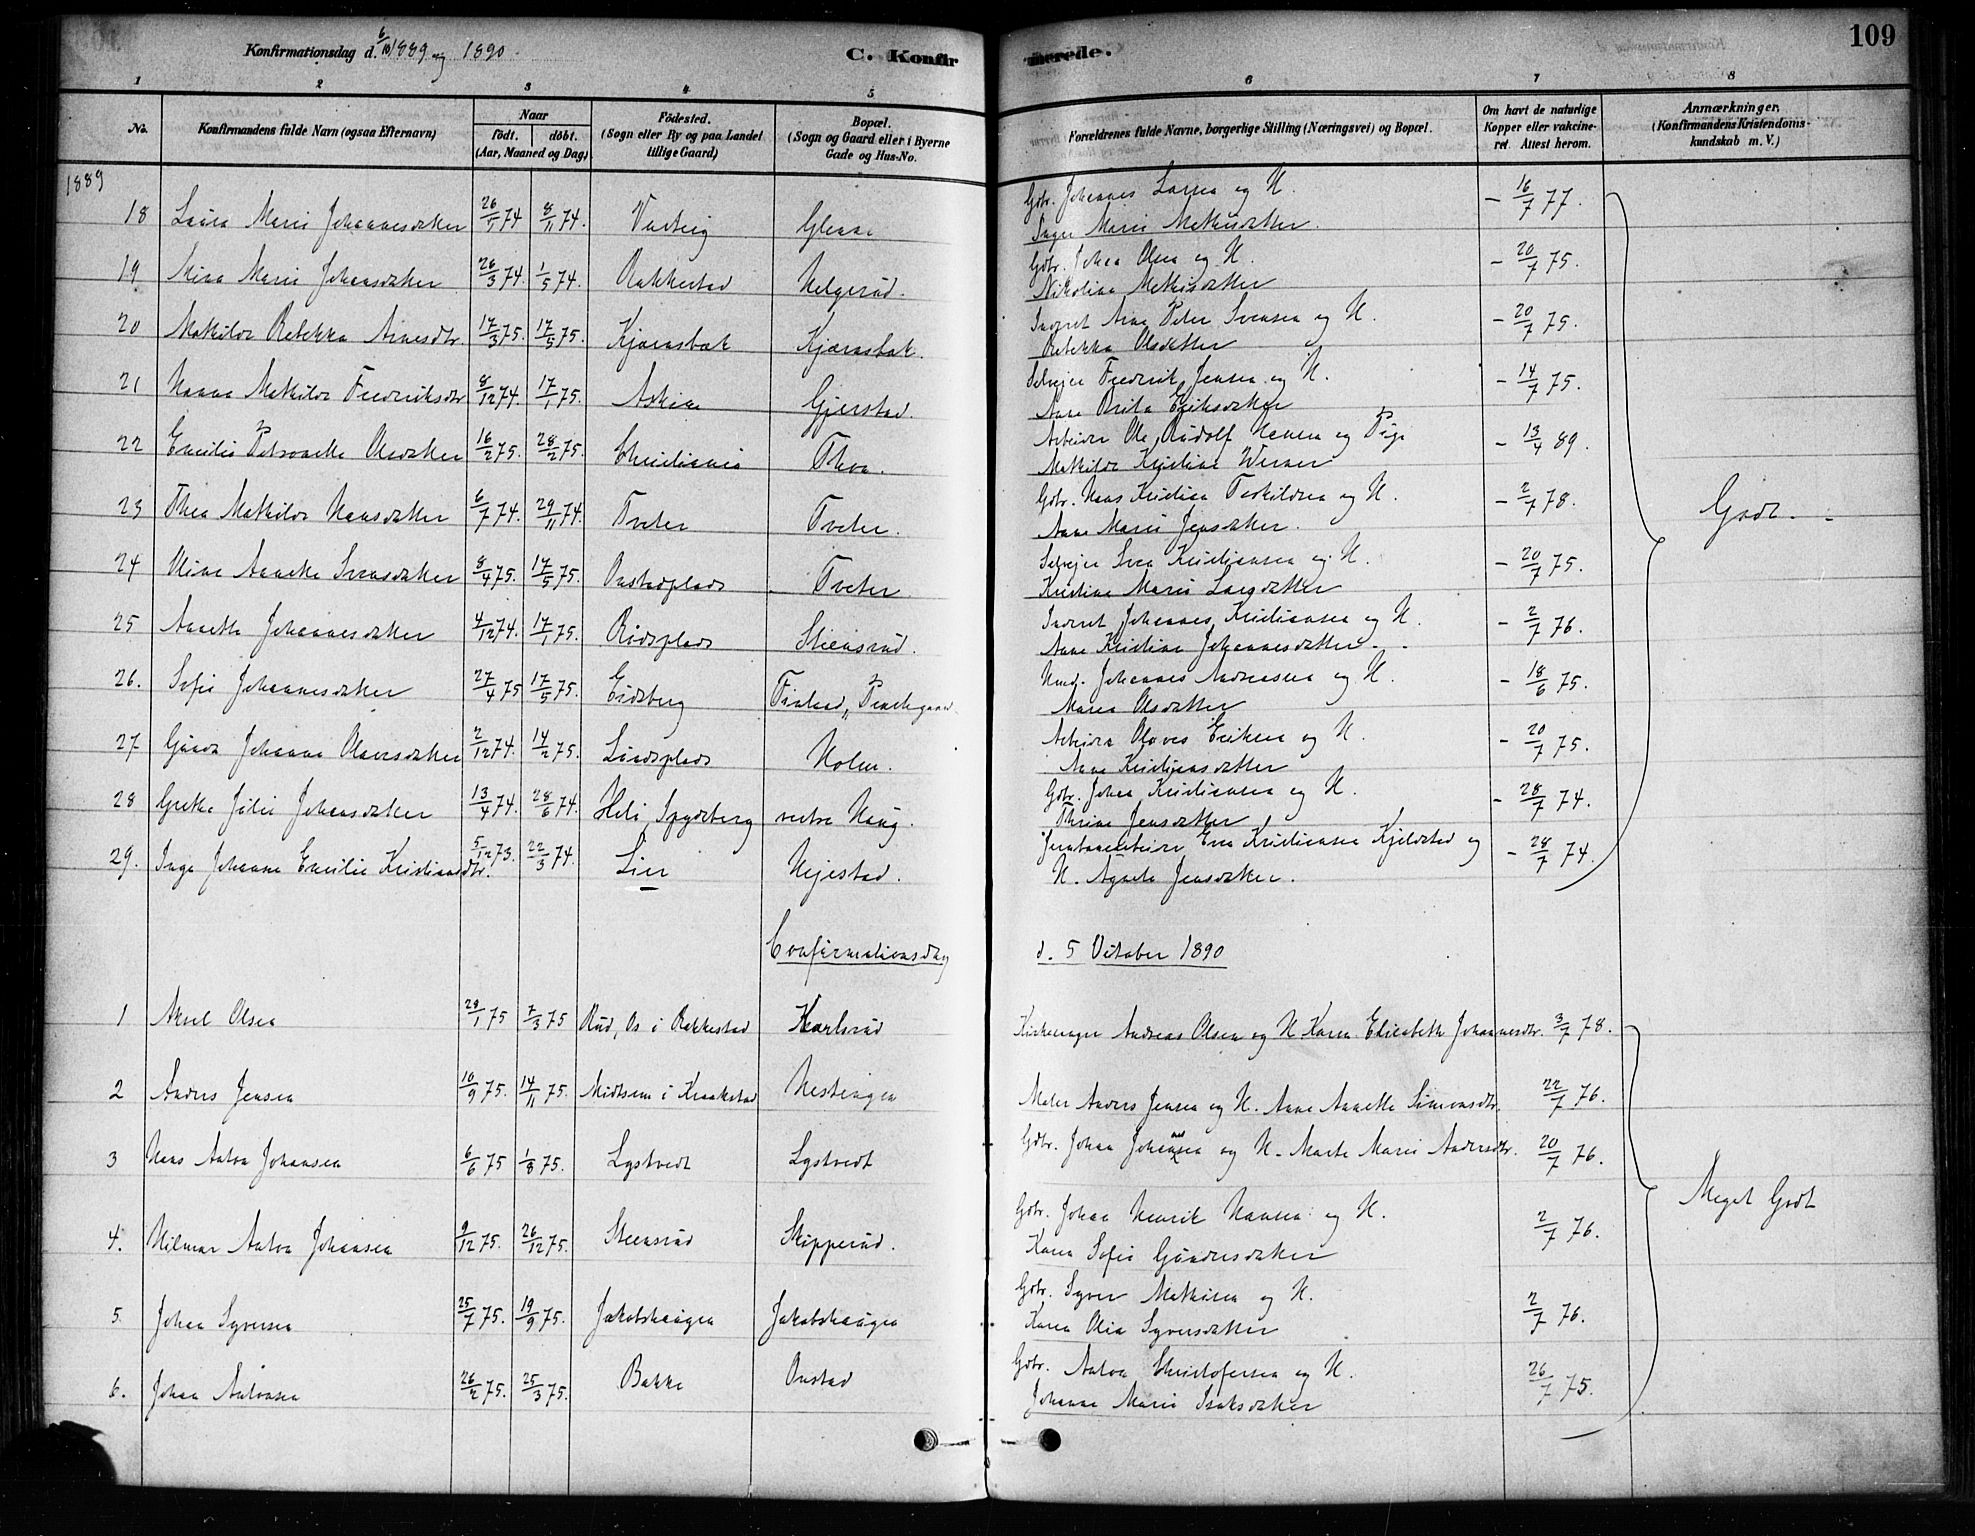 Konfirmationsdag d. 6/10 1889 og 1890. C. Konfirmerede. 109
1 2 3 4 5 6 7 8
No. Konfirmandens fulde Navn (ogsaa Efternavn) Naar født. døbt. (Aar, Maaned og Dag) Fødested. (Sogn eller By og paa Landet tillige Gaard) Bopæl. (Sogn og Gaard eller i Byerne Gade og Hus-No. Forældrenes fulde Navne, borgerlige Stilling (Næringsvei) og Bopæl. Om havt de naturlige Kopper eller vakcineret. Attest herom. Anmærkninger. (Konfirmandens Kristendomskundskab m. V.)
1889
18 Laura Marie Johannesdatter 26/1 74 8/11 74. Vestvig Glenne Gdbr. Johannes Larsen og H. Inger Marie Mathisdatter. - 16/7 77.
19. Mina Marie Johansdatter 26/3 74. 1/5 74. Rakkestad Helgerud. Gbr. Johan Olsen og H. Nikoline Mathisdatter - 20/7 75.
20 Mathilde Rebekka Arnesdtr. 17/3 75. 17/5 75. Kjærnsbæk Kjærnsbæk. Inderst Arne Peter Svensen og H. Rebekka Olsdatter - 20/7 75.
21 Hanna Mathilde Fredriksdtr 8/12 74. 17/1 75. Askim Gjerstad. Selvejer Fredrik Jensen og H. Anne Brita Eriksdatter - 14/7 75.
22 Emilie Petronelle Olsdatter 16/2 75. 28/2 75. Christiania Thon. Arbeider Ole Rudolf Hansen og Pige Mathilde Kristine Werner - 13/4 89.
23 Thea Mathilde Hansdatter 6/7 74. 29/11 74. Tveter Tveter. Gdbr. Hans Kristian Terkildsen og H. Anne Marie Jensdatter. - 2/7 78.
24 Oline Annette Svensdatter 8/4 75. 17/5 75. Onstadplads Tveter. Selvejer Sven Kristiansen og H. Kristine Marie Larsdatter - 20/7 75.
25 Annette Johannesdatter 4/12 74. 17/1 75. Rudsplads Steensrud. Inderst Johannes Kristiansen og H. Anne Kristine Johannesdatter. - 2/7 76.
26. Sofie Johannesdatter 27/4 75 17/5 75. Eidsberg Johannes Andreasen og H. Maren Olsdatter - 18/6 75.
27 Gunda Johanne Olavesdatter 2/12 74. 14/2 75. Lundsplads Holm. Arbeider Olaves Eriksen og H. Anne Kristiansdatter - 20/7 75.
28 Grethe Julie Johansdatter 13/4 74. 28/6 74. Heli, Spydeberg vestre Haug. Gdbr. Johan Kristiansen og H. Thrine Jensdatter - 28/7 74.
29. Inga Johanne Emilie Kristiansdtr. 5/12 73. 22/3 74. Lier Hejestad. Jernbanearbeider Even Kristiansen Kjeldstad og H. Agnete Jensdatter. - 28/7 74.
Godt.
Confirmationsdag d. 5 October 1890
1 Aksel Olsen 29/1 75 7/3 75 Rud, Os i Rakkestad Karlsrud Kirkesanger Andreas Olsen og H. Karen Elisabeth Johannesdtr. 3/7 78.
2 Anders Jensen 10/9 75. 14/11 75. Midtsem i Kraakstad Hestengen Maler Anders Jensen og H. Anne Annette Simonsdtr. 22/7 76.
3 Hans Anton Johansen 6/6 75 1/8 75. Lystvedt Lystvedt Gdbr. Johan Johannesen og H. Marte Marie Andersdtr. 20/7 76.
4. Hilmar Anton Johansen 9/12 75. 26/12 75. Steensrud Skipperud. Gdbr. Johan Henrik Hansen og H. Karen Sofie Gundersdatter 2/7 76.
5. Johan Syversen 25/7 75. 19/9 75. Jakobshaugen Jakobshaugen Gdbr. Syver Mathisen og H. Karen Olia Syversdatter 2/7 76.
6. Johan Antonsen 26/2 75. 25/3 75. Bakke Onstad Gdbr. Anton Christofersen og H. Johanne Marie Isaksdatter 26/7 75.
Meget Godt